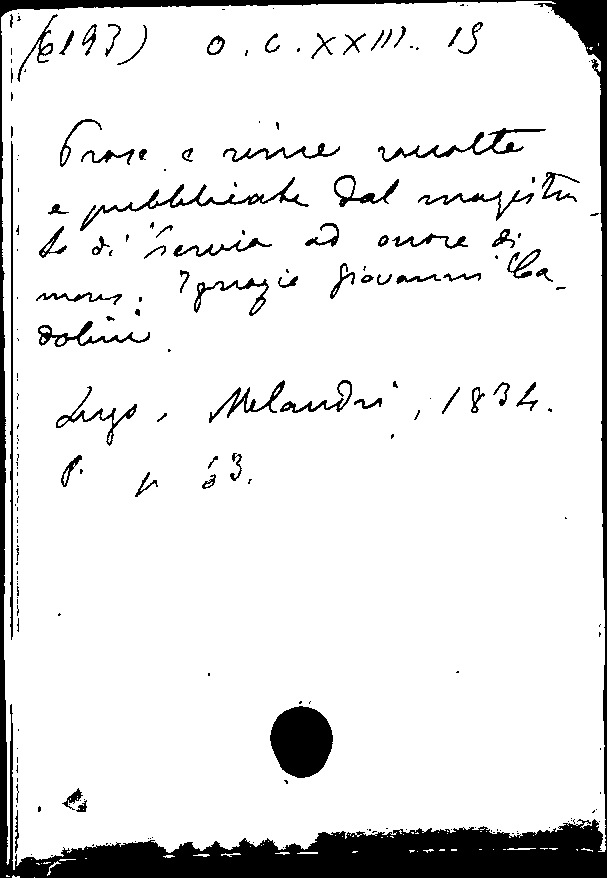 (6193) O.C.XXIII. 19
Prose e rime raccolte
e pubblicate dal magistra-
to di Cervia ad onore di
mons. Ignazio Giovanni Ca-
dolini.
Lugo, Melandri, 1834.
P. p 63.